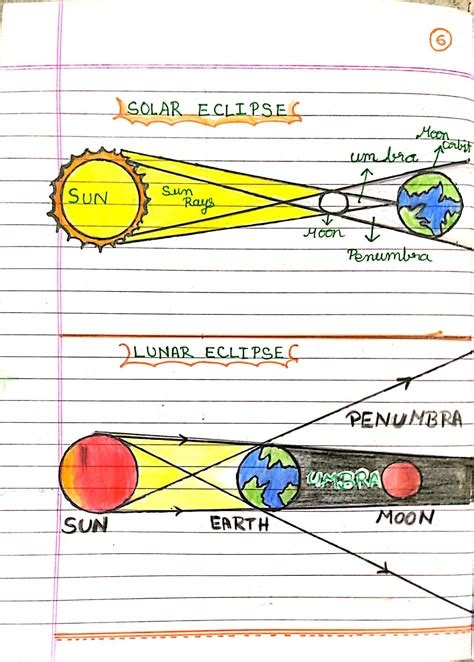 6
SOLAR ECLIPSE
Moon
Orbit
umbra
SUN
Sun
Rays
Moon
Penumbra
LUNAR ECLIPSE
PENUMBRA
UMBRA
SUN
EARTH
MOON